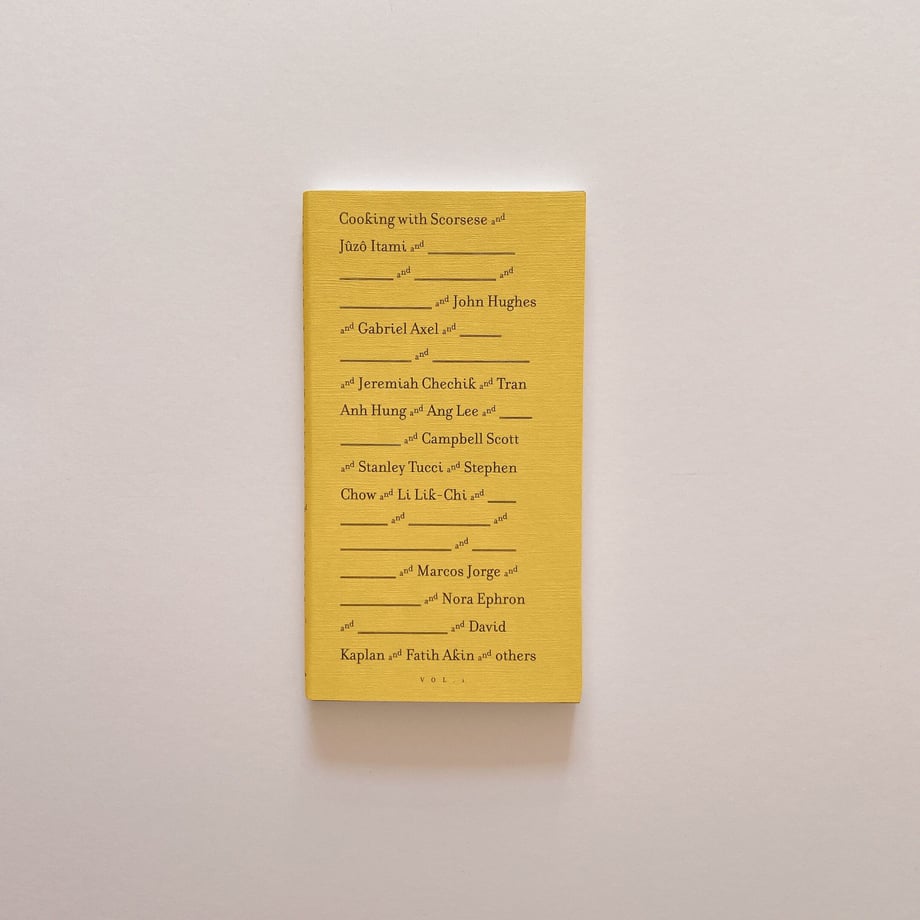 Cooking with Scorsese and
Jûzô Itami and ____________
________ and ____________ and
______________ and John Hughes
and Gabriel Axel and ______
___________ and _______________
and Jeremiah Chechik and Tran
Anh Hung and Ang Lee and _____
_________ and Campbell Scott
and Stanley Tucci and Stephen
Chow and Li Lik-Chi and ____
_______ and ____________ and
_________________ and ______
________ and Marcos Jorge and
____________ and Nora Ephron
and _____________ and David
Kaplan and Fatih Akin and others
VOL. 1